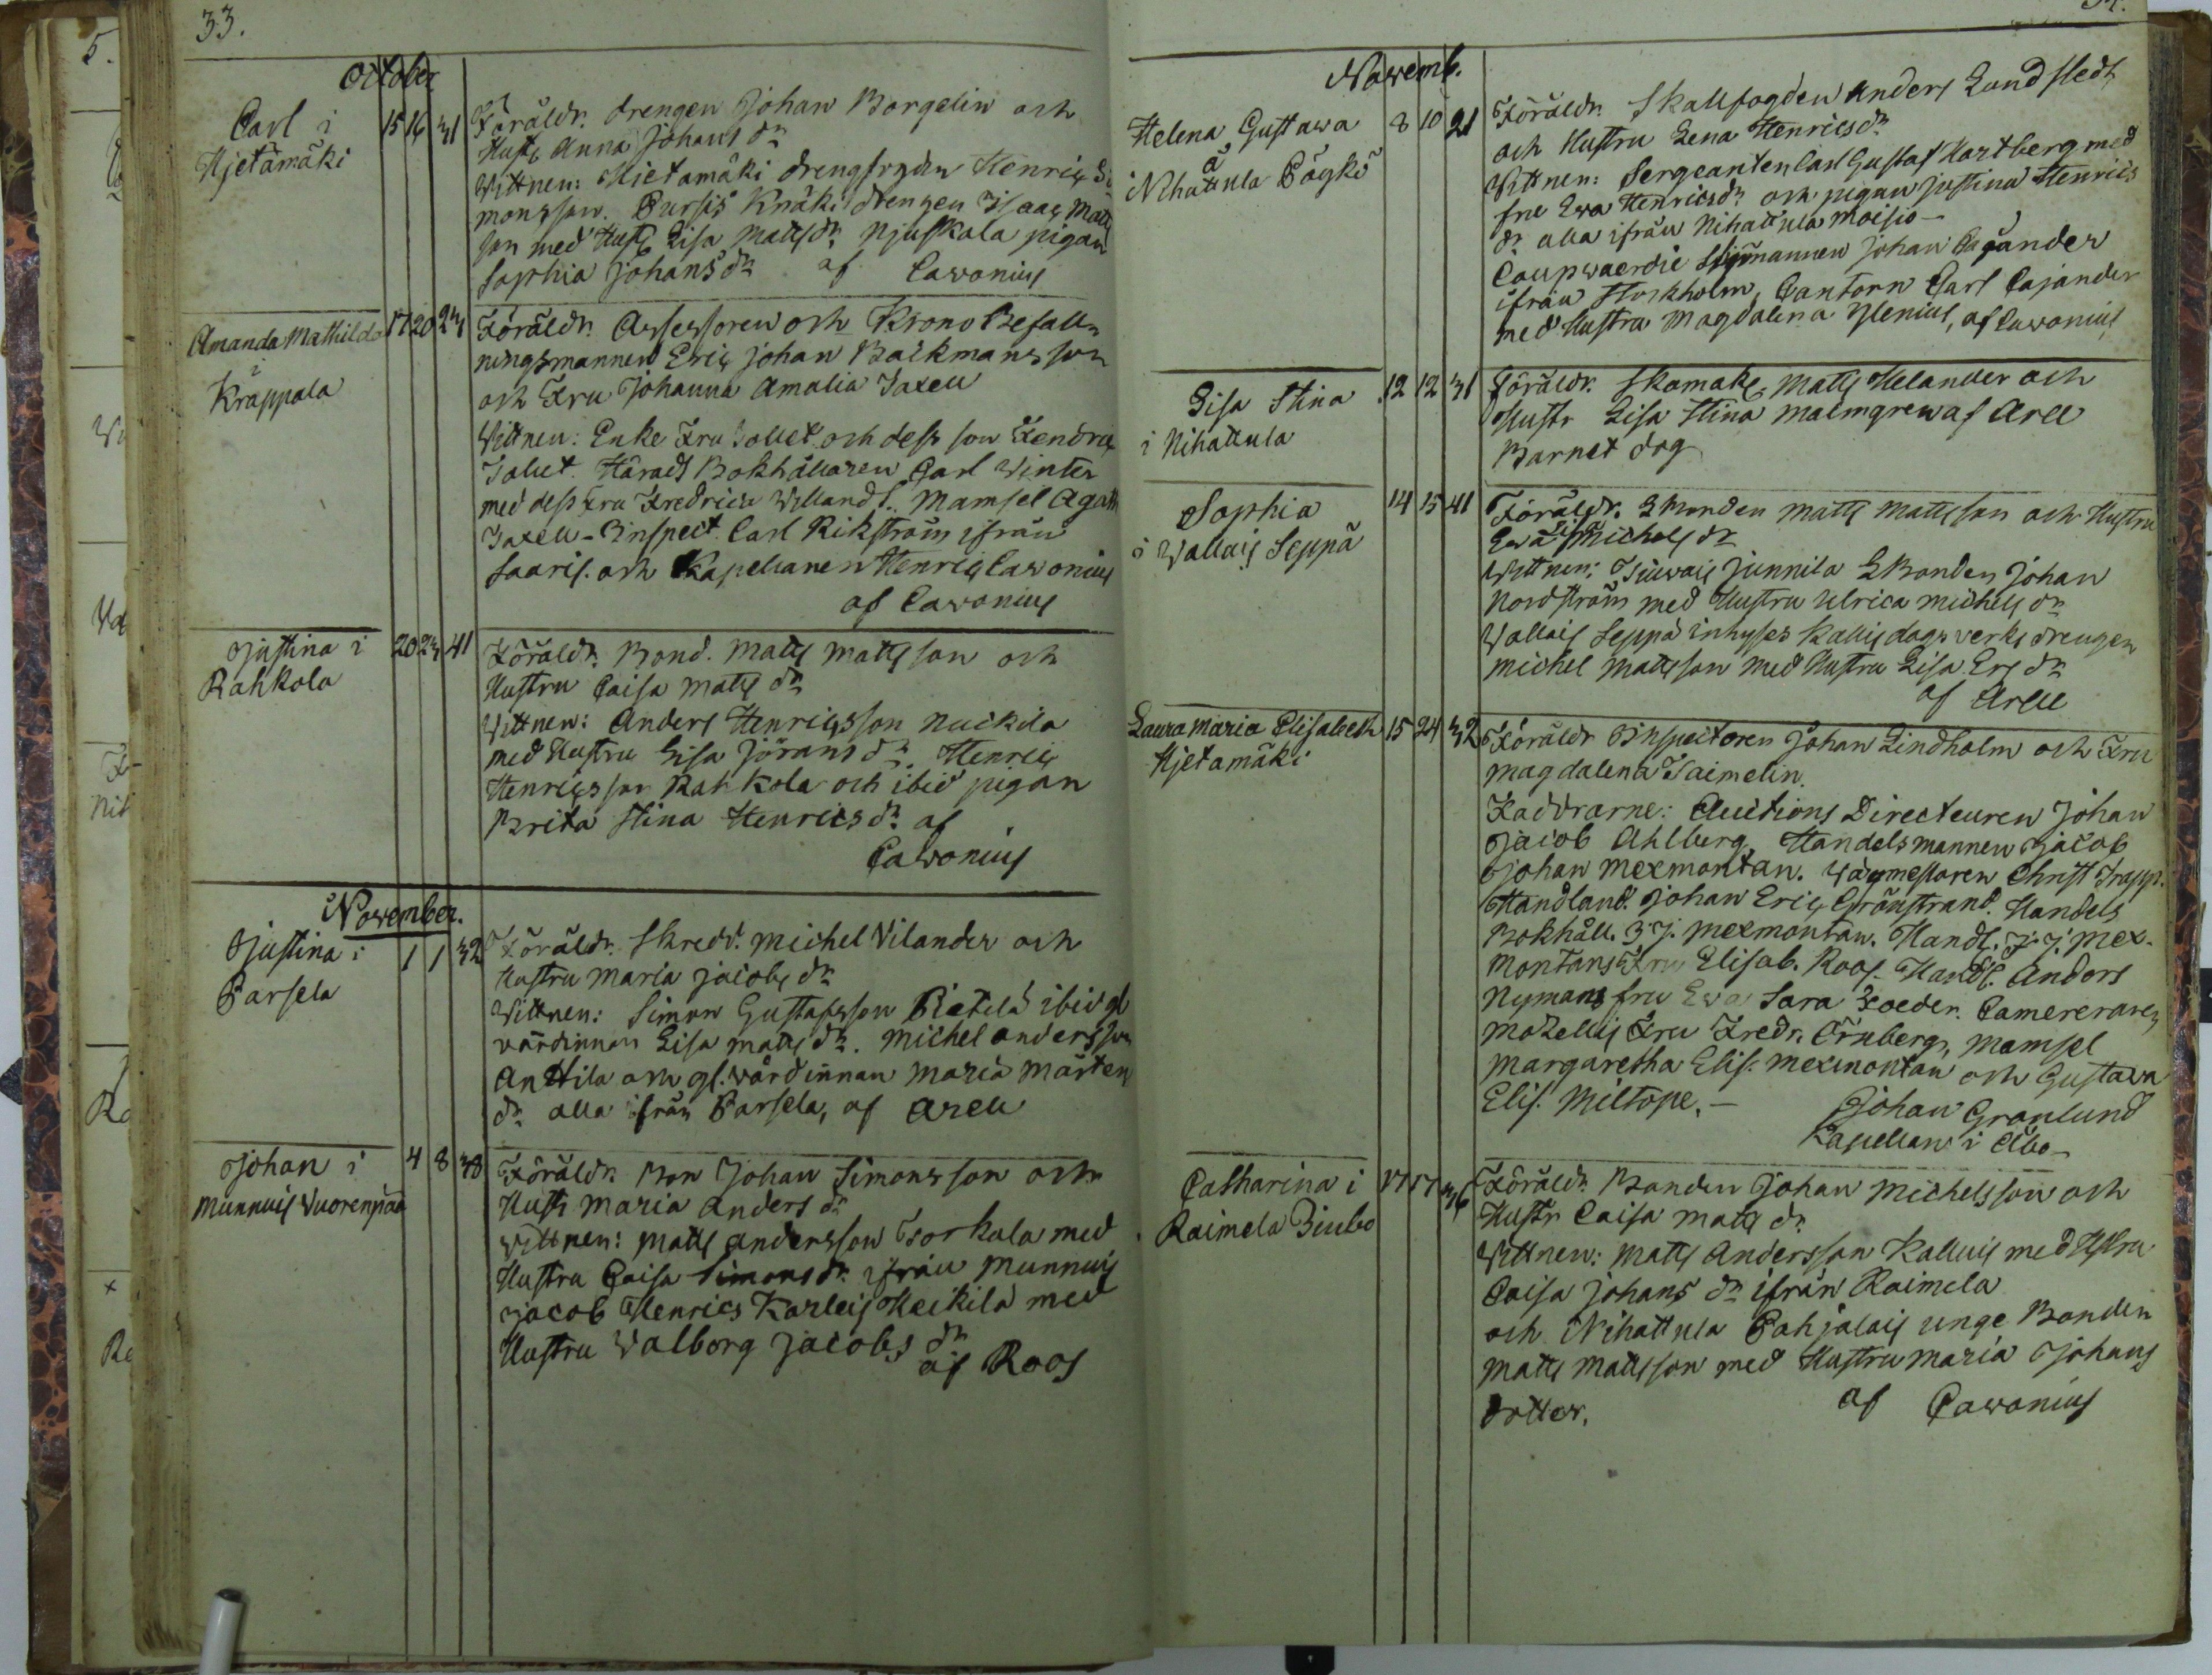 33.
October
Carl i 15 16 31 Föräldr. drengen Johan Borgelin och
Hjetämäki Hust. Anna Johans dr
Wittnen: Hietamäki drengfogden Henric Si
monsson. Pursis Knäki drengen Isaac Matts
son med Hust. Lisa Matts dr Njuskala pigan
Sophia Johans dr af Cavonius
Amanda Mathilda 17 20 23 Föräldr. Assessoren och Krono Befall
i ningsmannen Eric Johan Backmansson
Krappala och Fru Johanna Amalia Taxell
Wittnen: Enke Fru Jollet och dess son Fendric
Jollet. Härads Bokhållaren Carl Winter
med dess Fru Fredrica Willands. Mamsel Agath
Taxell - Inspect. Carl Rikström ifrån
Saaris. och Kapellanen Henric Cavonius
af Cavonius
Justina i 20 23 41 Föräldr. Bond. Matts Mattsson och
Rahkola Hustru Caisa Matts dr
Wittnen: Anders Henricsson Nuckila
med Hustru Lisa Jörans dr. Henric
Henricsson Rahkola och ibid pigan
Brita Stina Henrics dr af
Cavonius
November.
Justina i 1 1 32 Föräldr. Skredd. Michel Vilander och
Parsela Hustru Maria Jacobs dr
Wittnen: Simon Gustafsson Pietilä ibid gl
värdinnan Lisa Matts dr. Michel Andersson
Anttila och gl. wärdinnan Maria Mårtens
dr alla ifrån Parsela, af Arell
Johan i 4 8 38 Föräldr. Bon Johan Simonsson och
Munnuis Vuorenpää Hustr Maria Anders dr
Wittnen: Matts Andersson Torkala med
Hustru Caisa Simons dr ifrån Munnuis
Jacob Henrics Karleis Heikilä med
Hustru Walborg Jacobs dr
af Roos
Novemb.
Helena Gustawa 8 10 21 Föräldr. Skallfogden Anders Lundstedt
å och Hustru Lena Henrics dr
Nihattula Pågki Wittnen: Sergeanten Carl Gustaf Hartberg med
frue Ewa Henrics dr och pigan Justina Henrics
dr alla ifrån Nihattula Moisio -
Coupwaerdie Sjömannen Johan Cajander
ifrån Stockholm, Cantorn Carl Cajander
med Hustru Magdalena Ylenius, af Cavonius
Lisa Stina 12 12 31 Föräldr. Skomak. Matts Helander och
i Nihattula Hustr Lisa Stina Malmgren af Arell
Barnet dog
Sophia 14 15 41 Föräldr. Bonden Matts Mattsson och Hustru
i Wallais Seppä Ewa Michels dr
Wittnen: Junnila Bonden Johan
Nordström med Hustru Ulrica Michels dr
Wallais Seppä inhyses Kallis dagsverks drengen
Michel Mattsson med Hustru Lisa Ers dr
af Arell
Laura Maria Elisabeth 15 24 32 Föräldr Inspectoren Johan Lindholm och Fru
Hjetamäki Magdalena Saimelin.
Faddrarne: Auctions Directeuren Johan
Jacob Ahlberg, Handelsmannen Jacob
Johan Mexmontan. Wägmestaren Christ Trapp.
Handland. Johan Eric Grönstrand. Handels
Bokhåll. J. J. Mexmontan. Handl. J. J. Mex-
montans Fru Elisab. Roos. Handl. Anders
Nymans fru Ewa Sara Zoeder. Camereraren
Motellis Fru Fredr. Örnberg, Mamsel
Margaretha Elis. Mexmontan och Gustava
Elis. Miltope. - Johan Granlund
Kapellan i Åbo -
Catharina i 17 17 36 Föräldr. Bonden Johan Michelsson och
Raimela Junbo Hustr Caisa Matts dr
Wittnen: Matts Andersson Kalluis med Hstru
Caisa Johans dr ifrån Raimela
och Nihattula Pahjalais unge Bonden
Matts Mattsson med Hustru Maria Johans
dotter. af Cavonius